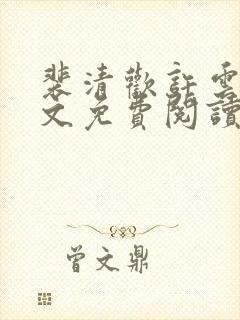 裴清歡許雲
文免費閱讀
曾文鼎